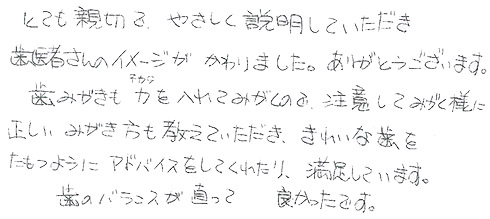 とても親切で、やさしく説明していただき
歯医者さんのイメージが かわりました。ありがとうございます。
歯みがきも 力を入れてみがくので、注意してみがく様に
正しい みがき方も教えていただき、きれいな歯を
たもつように アドバイスをしてくれたり、満足しています。
歯のバランスが直って 良かったです。